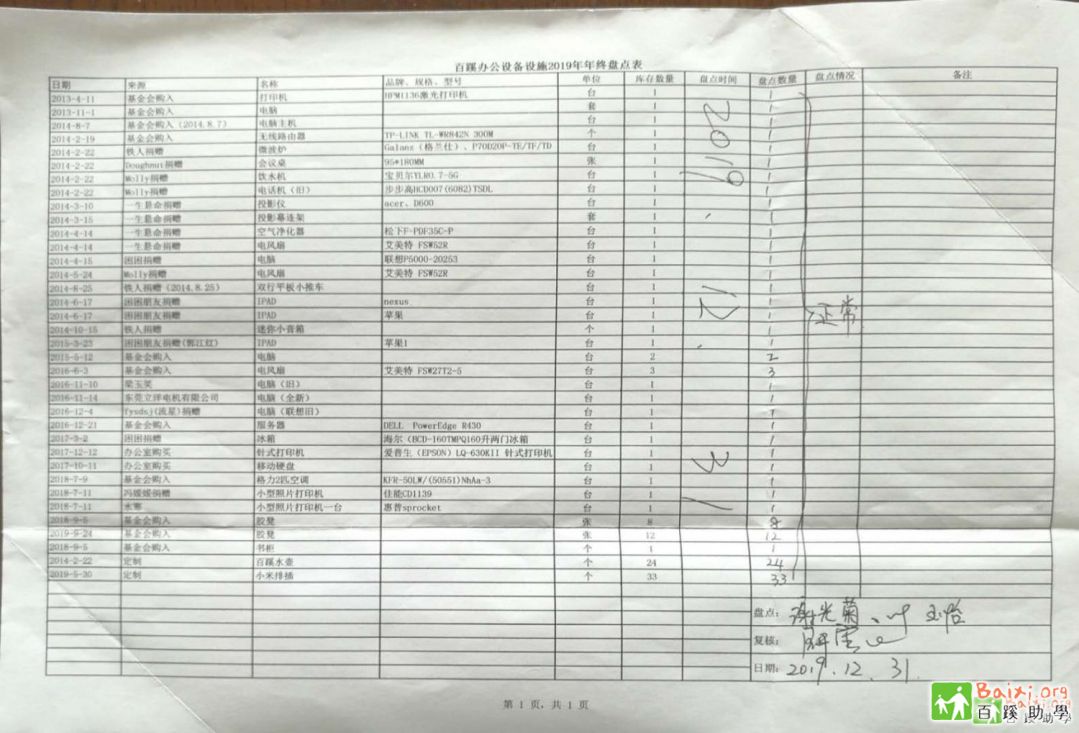 百蹊办公设备设施2019年年终盘点表
日期 来源 名称 品牌、规格、型号 单位 库存数量 盘点时间 盘点数量 盘点情况 备注
2013-4-11 基金会购入 打印机 HPM1136激光打印机 台 1 1
2013-11-1 基金会购入 电脑 套 1 1
2014-8-7 基金会购入(2014.8.7) 电脑主机 台 1 1
2014-2-19 基金会购入 无线路由器 TP-LINK TL-WR842N 300M 个 1 1
2014-2-22 铁人捐赠 微波炉 Galanz(格兰仕)、P70D20P-TE/TF/TD 台 1 1
2014-2-22 Doughnut捐赠 会议桌 95*180MM 张 1 1
2014-2-22 Molly捐赠 饮水机 宝贝尔YLR0.7-5G 台 1 1
2014-2-22 Molly捐赠 电话机(旧) 步步高HCD007(6082)TSDL 台 1 1
2014-3-10 一生悬命捐赠 投影仪 acer、D600 台 1 1
2014-3-15 一生悬命捐赠 投影幕连架 套 1 1
2014-4-14 一生悬命捐赠 空气净化器 松下F-PDF35C-P 台 1 1
2014-4-14 一生悬命捐赠 电风扇 艾美特 FSW52R 台 1 1
2014-4-15 困困捐赠 电脑 联想P5000-20253 台 1 1
2014-5-24 Molly捐赠 电风扇 艾美特 FSW52R 台 1 1
2014-8-25 铁人捐赠(2014.8.25) 双行平板小推车 台 1 1
2014-6-17 困困朋友捐赠 IPAD nexus 台 1 1
2014-6-17 困困朋友捐赠 IPAD 苹果 台 1 1
2014-10-15 铁人捐赠 迷你小音箱 个 1 1
2015-3-23 困困朋友捐赠(郭江红) IPAD 苹果1 台 1 1
2015-5-12 基金会购入 电脑 台 2 2
2016-6-3 基金会购入 电风扇 艾美特 FSW27T2-5 台 3 3
2016-11-10 梁玉英 电脑(旧) 台 1 1
2016-11-14 东莞立洋电机有限公司 电脑(全新) 台 1 1
2016-12-4 fysdsj(流星)捐赠 电脑(联想旧) 台 1 1
2016-12-21 基金会购入 服务器 DELL PowerEdge R430 台 1 1
2017-3-2 困困捐赠 冰箱 海尔(BCD-160TMPQ160升两门冰箱 台 1 1
2017-12-12 办公室购买 针式打印机 爱普生(EPSON)LQ-630KII 针式打印机 台 1 1
2017-10-11 办公室购买 移动硬盘 台 1 1
2018-7-9 基金会购入 格力2匹空调 KFR-50LW/(50551)NhAa-3 台 1 1
2018-7-11 冯媛媛捐赠 小型照片打印机 佳能CD1139 台 1 1
2018-7-11 水寒 小型照片打印机一台 惠普sprocket 台 1 1
2018-9-5 基金会购入 胶凳 张 8 8
2019-9-24 基金会购入 胶凳 张 12 12
2018-9-5 基金会购入 书柜 个 1 1
2014-2-22 定制 百蹊水壶 个 24 24
2019-5-30 定制 小米排插 个 33 33
2019.12.31
正常
盘点: 谢光菊、叶玉怡
复核:
日期: 2019.12.31.
第 1 页, 共 1 页
Baixi.org
百蹊助學